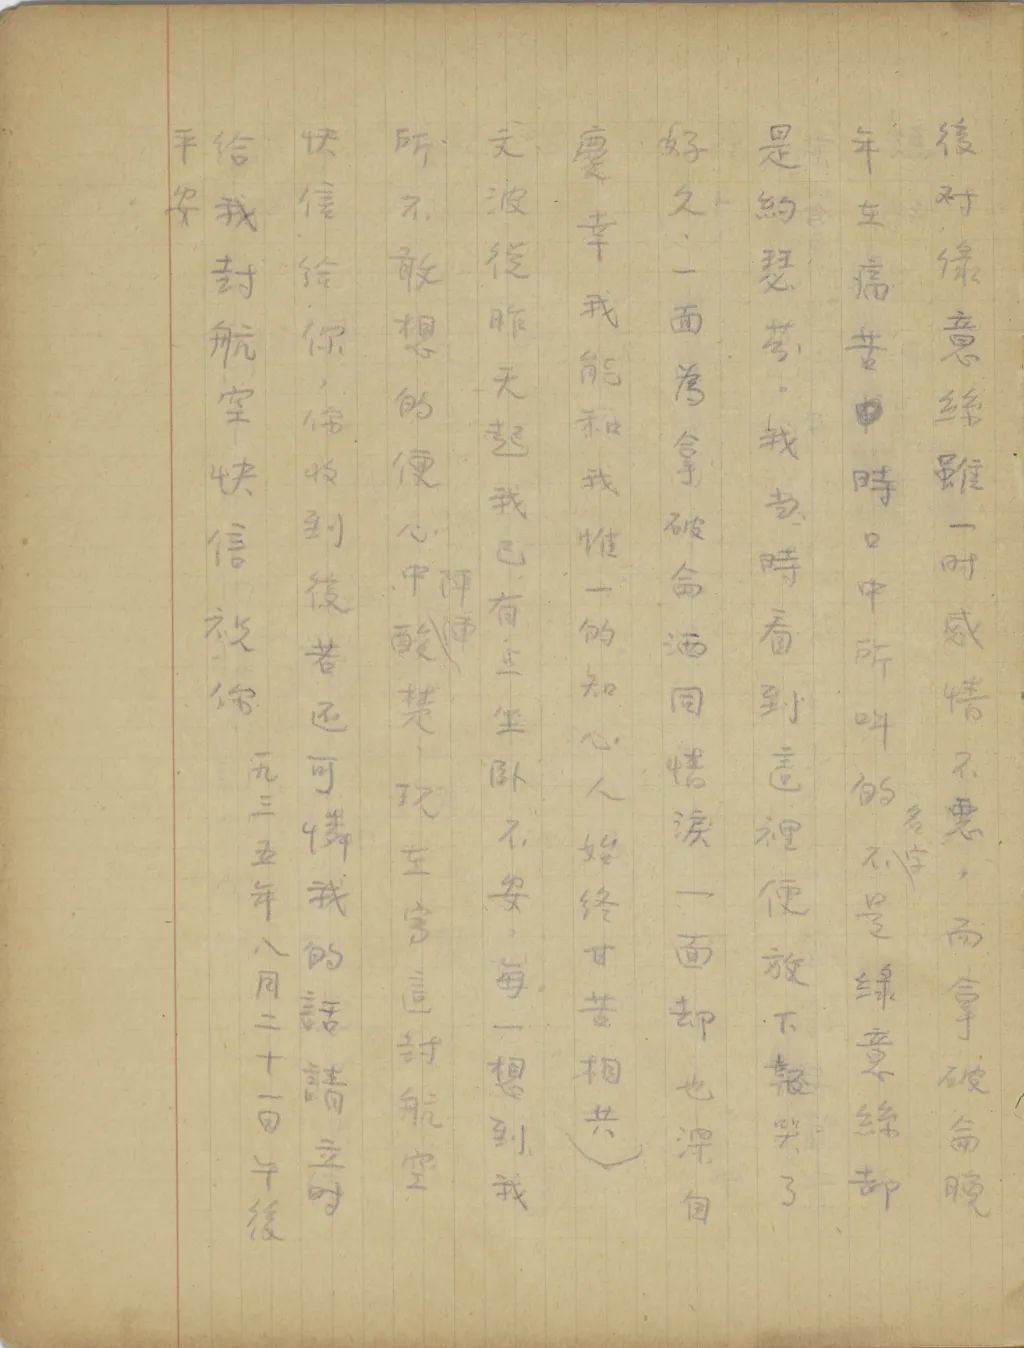 後对綠意絲雖一时感情不恶，而拿破侖晚
年在痛苦中時口中所叫的名字不是綠意絲却
是約瑟芬。我当時看到這裡便放下報哭了
好久，一面為拿破侖洒同情淚一面却也深自
慶幸我能和我惟一的知心人始終甘苦相共
文波從昨天起我已有立坐卧不安，每一想到我
所不敢想的便心中陣陣酸楚，现在寄這封航空
快信給你，你收到後若还可憐我的話請立时
給我封航空快信 祝你
平安
一九三五年八月二十一日午後